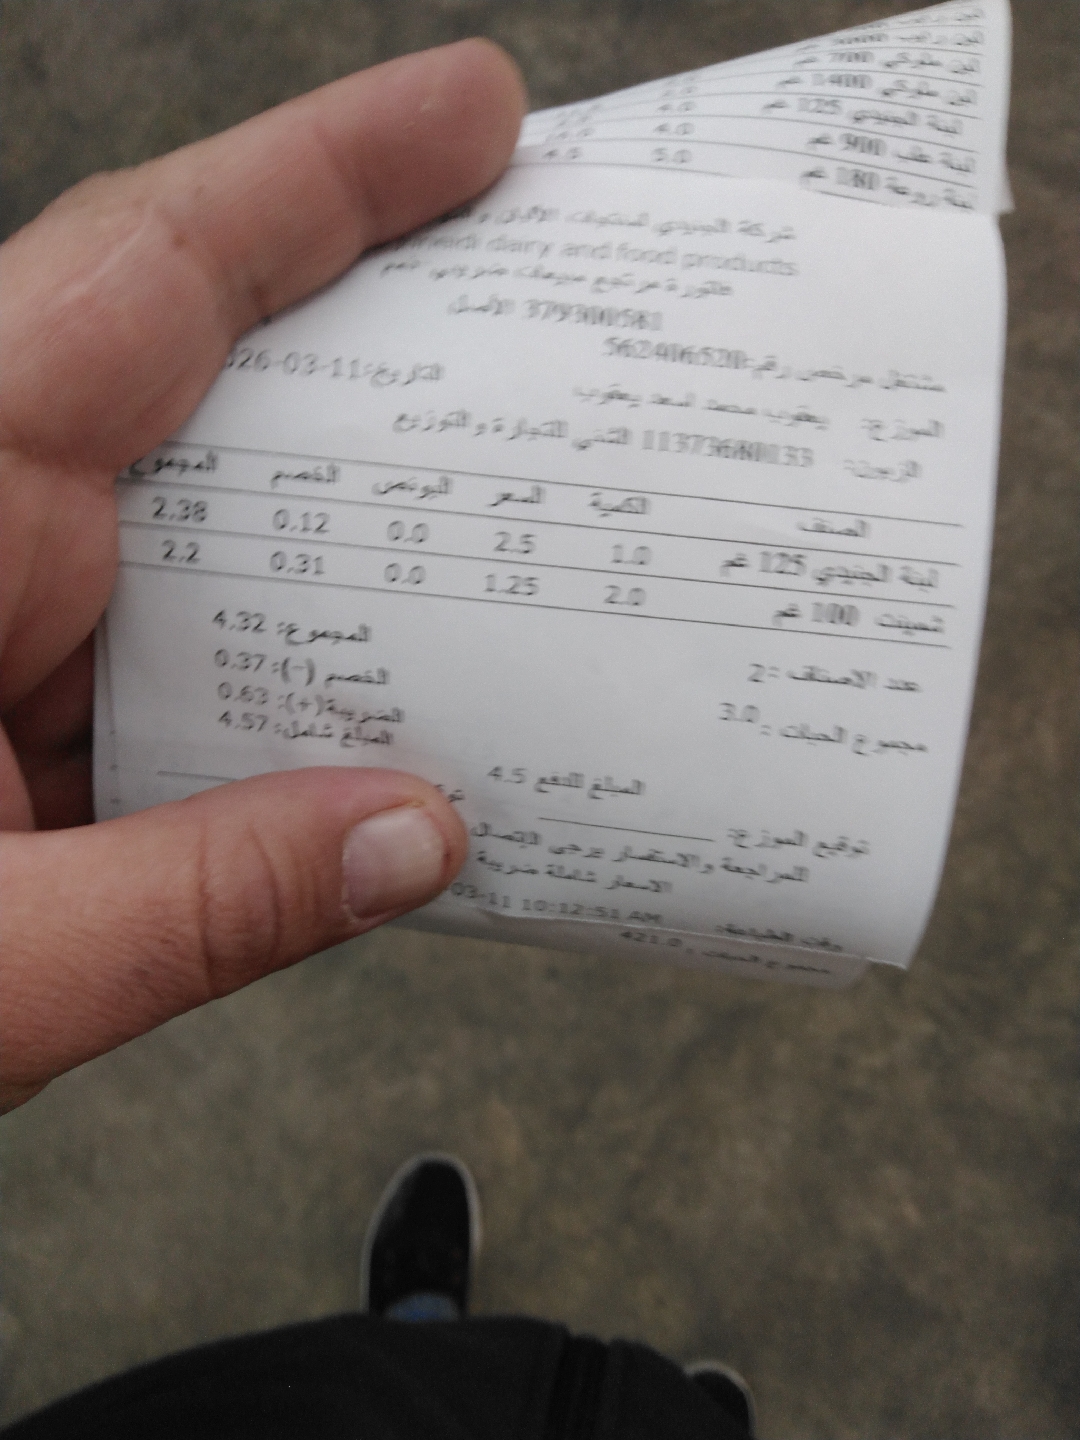 لبن تركي 700 غم
لبن تركي 1400 غم
لبنة الجنيدي 125 غم 4.0
لبنة علب 900 غم 4.0 4.0
لبنة روعة 180 غم 5.0 4.5
شركة الجنيدي لمنتجات الألبان و
dairy and food products
فاتورة مرتجع مبيعات ضريبي نعم
379300581 الأصل
مشتغل مرخص رقم:562406520
التاريخ:026-03-11
الموزع: يعقوب محمد اسعد يعقوب
الزبون: 11373680133 التقني للتجارة و التوزيع
الصنف الكمية السعر البونص الخصم المجموع
لبنة الجنيدي 125 غم 1.0 2.5 0.0 0.12 2.38
شمينت 100 غم 2.0 1.25 0.0 0.31 2.2
المجموع: 4.32
عدد الاصناف :2
الخصم (-): 0.37
مجموع الحبات : 3.0
الضريبة(+): 0.63
المبلغ شامل: 4.57
المبلغ للدفع 4.5
توقيع الموزع:
للمراجعة والاستفسار يرجى الإتصال
الاسعار شاملة ضريبة
وقت الطباعة: 03-11 10:12:51 AM
مجموع الحبات : 421.0